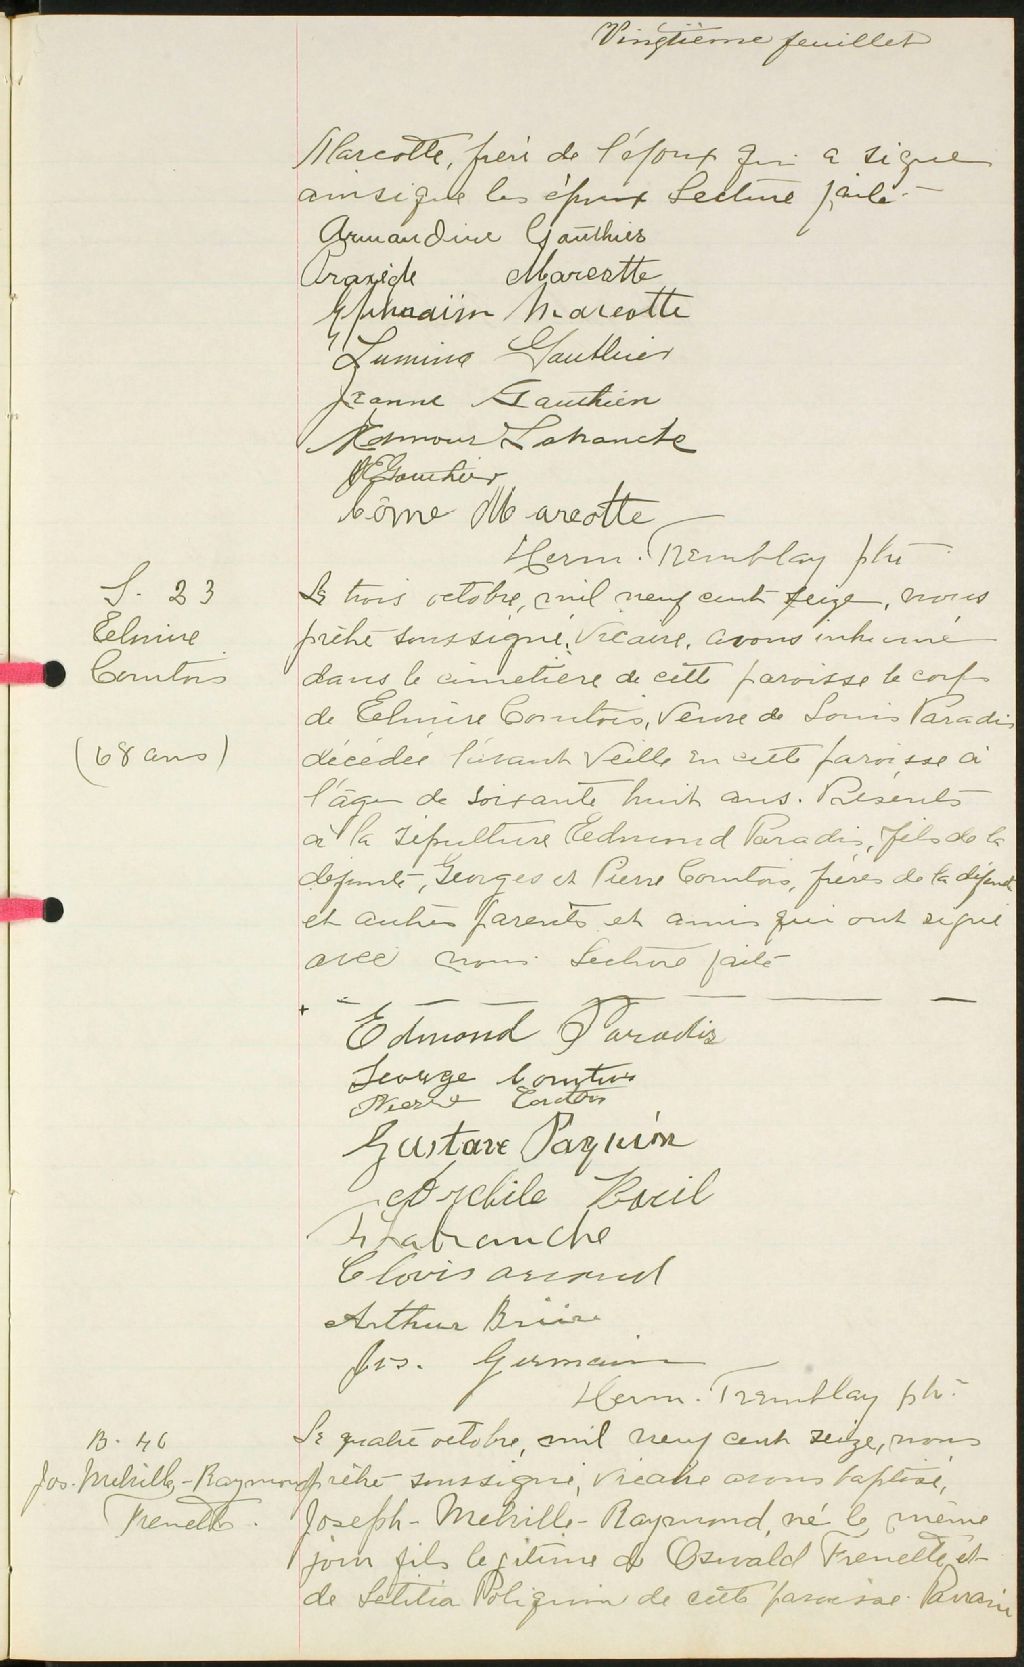 Vingtième feuillet
Marcotte, frère de l'époux qui a signé
ainsi que les époux Lecture faite.
Armandine Gauthier
Praxède Marcotte
Ephraïm Marcotte
Lumina Gauthier
Jeanne Gauthier
Armour Labranche
JEGauthier
Côme Marcotte
Herm. Tremblay ptre
S. 23
Elmire
Comtois
(68 ans)
Le trois octobre, mil neuf cent seize, nous
prêtre soussigné, Vicaire, avons inhumé
dans le cimetière de cette paroisse le corps
de Elmire Comtois, Veuve de Louis Paradis
décédée l'avant veille en cette paroisse à
l'âge de soixante huit ans. Présents
à la sépulture Edmond Paradis, fils de la
défunte, Georges et Pierre Comtois, frères de la défunte
et autres parents et amis qui ont signé
avec nous. Lecture faite
Edmond Paradis
George Comtois
Pierre Comtois
Gustave Paquin
Archile
Labranche
Clovis
Arthur
Jos. Germain
Herm. Tremblay ptr.
B. 46
Jos. Melville-Raymond
Frenette.
Le quatre octobre, mil neuf cent seize, nous
prêtre soussigné, vicaire avons baptisé,
Joseph-Melville-Raymond, né le même
jour fils légitime de Oswald Frenette et
de Letitia Poliquin de cette paroisse. Parrain